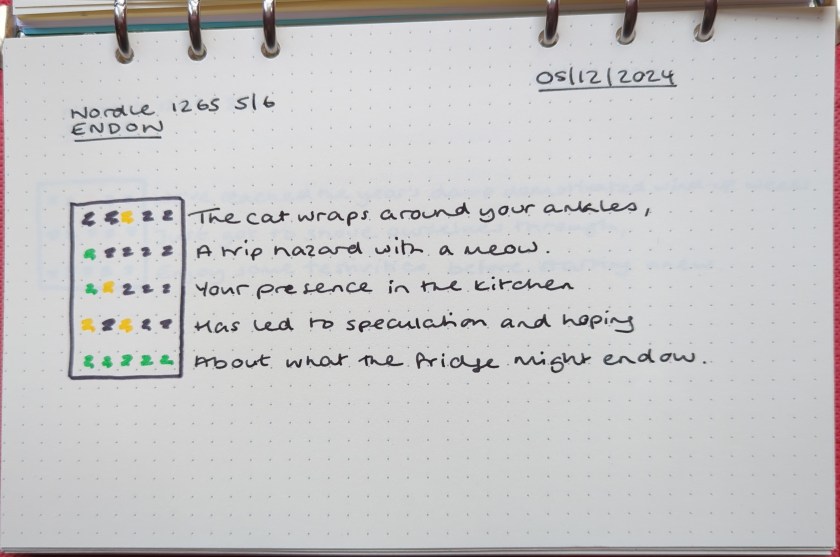 05/12/2024
Wordle 1265 5/6
ENDOW
The cat wraps around your ankles,
A trip hazard with a meow.
Your presence in the kitchen
Has led to speculation and hoping
About what the fridge might endow.